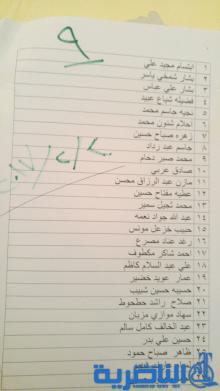 ٩
١ ابتسام مجيد علي
٢ بشار شمخي ياسر
٣ بشار علي عباس
٤ فضيله شياع عبيد
٥ نجيه جاسم محمد
٦ احلام شنون محمد
٧ زهره صباح حسين
٨ جاسم عبد رداد
٩ محمد صبر دحام
١٠ صادق عريبي
١١ مازن عبد الرزاق محسن
١٢ عطيه مفتاح حسين
١٣ محمد نجيل سمير
١٤ عبد الله جواد نعمه
١٥ حبيب خزعل مونس
١٦ رغد عناد مصرع
١٧ احمد شاكر مكطوف
١٨ علي عبد السلام كاظم
١٩ عمار عويد خضير
٢٠ حسيبه حسين شبيب
٢١ صلاح راشد حطحوط
٢٢ سهاد موازي مزبان
٢٣ عبد الخالف كامل سالم
٢٤ حسين علي بدر
ظاهر صباح حمود
الناصرية